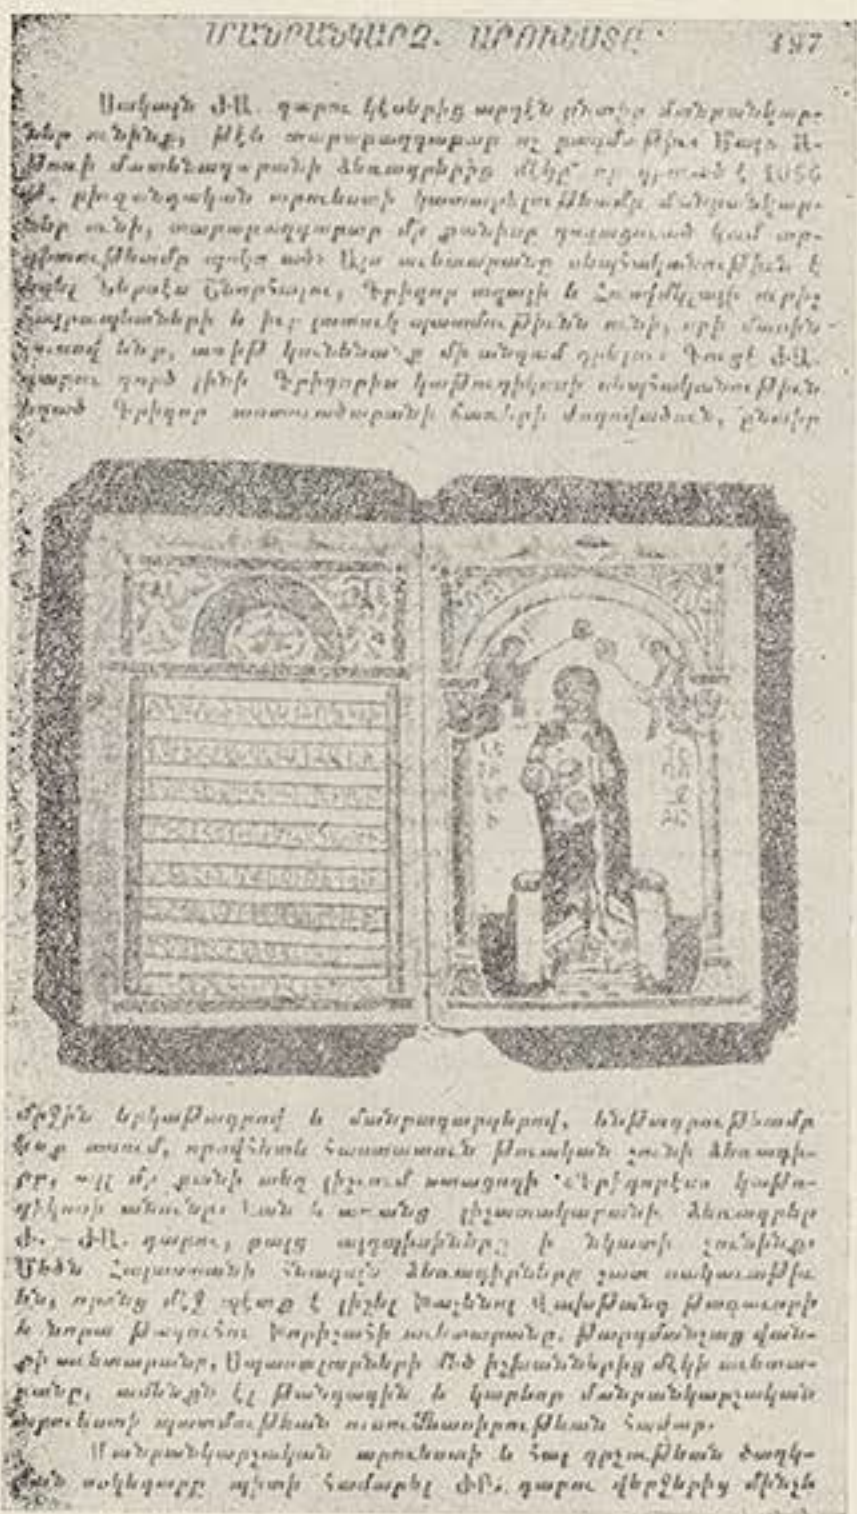 ՄԱՆՐԱՆԿԱՐՉ. ԱՐՈՒԵՍՏԸ 197
Սակայն ԺԱ. դարու կէսերից արդէն ընտիր մանրանկար-
ներ ունինք, թէև տարաբաղդաբար ոչ բազմաթիւ։
մատենադարանի ձեռագրերից մէկը որ գրուած է 1056
թ. բիւզանդական արուեստի կատարելութեամբ մանրանկար-
ներ ունի, տարաբաղդաբար մի քանիսը կամ ար-
Այս աւետարանը սեպհականութիւն է
եղել Ներսէս Շնորհալու, Գրիգոր տղայի և Հռոմկլայի ուրիշ
հայրապետների և իւր յատուկ պատմութիւնն ունի, որի մասին
յուսով ենք, առիթ կունենանք մի անգամ գրելու։ Գուցէ ԺԱ.
դարու գործ լինի Գրիգորիս կաթուղիկոսի սեպհականութիւն
եղած Գրիգոր աստուածաբանի ճառերի ժողովածուն, ընտիր
միջին երկաթագրով և մանրազարդերով, ենթադրութեամբ
ենք ասում, որովհետև հաստատուն թուական չունի ձեռագի-
րը, այլ մի քանի տեղ յիշւում ստացողի Գրիգորէսս կաթո-
ղիկոսի անունը։ Կան և առանց յիշատակարանի ձեռագրեր
Ժ. — ԺԱ. դարու, բայց այդպիսիները ի նկատի չունինք։
Մեծն Հայաստանի հնագոյն ձեռագիրները շատ սակաւաթիւ
են, որոնց մէջ պէտք է յիշել Խաչենոյ Վախթանգ թագաւորի
և նորա թագուհու Խորիշահի աւետարանը. Թարգմանչաց վան-
քի աւետարանը, Սպասալարների մեծ իշխաններից մէկի աւետա-
րանը, ամենքն էլ թանգագին և կարևոր մանրանկարչական
արուեստի պատմութեան ուսումնասիրութեան համար.
Մանրանկարչական արուեստի և հայ գրչութեան ծաղկ-
ման ոսկեդարը պիտի համարել ԺԲ. դարու վերջերից մինչև